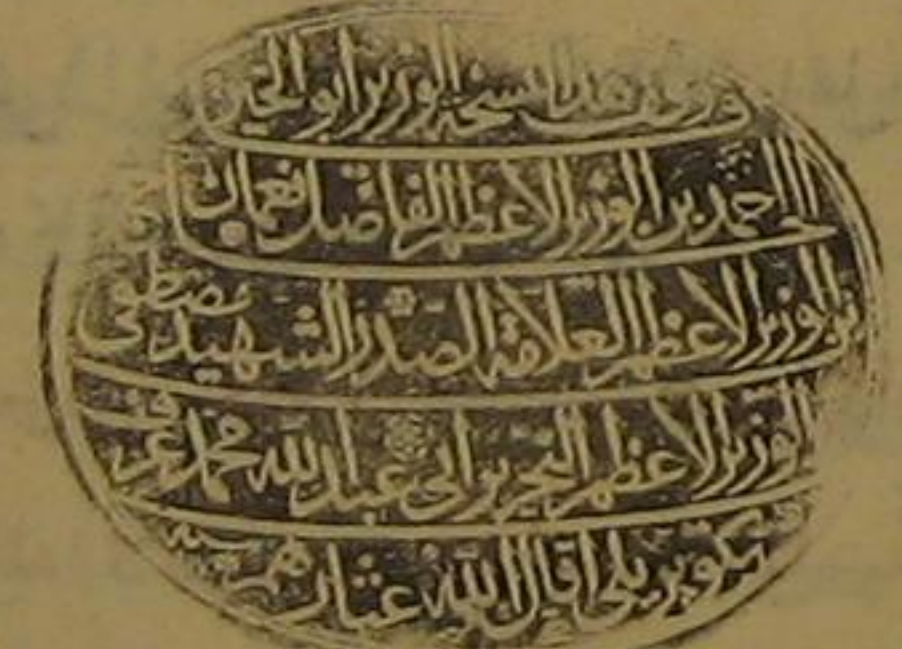 وقف هذا النسخة الوزير ابو الخير
الحاج احمد بن الوزير الاعظم الفاضل نعمان
بن الوزير الاعظم العلامة الصدر الشهيد مصطفى
الوزير الاعظم النحرير ابى عبد الله محمد عرف
بكوبريلى اقال الله عثارهم